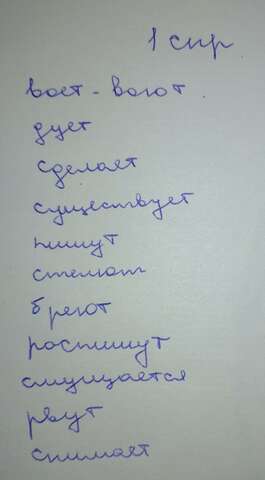 1 спр
воет - воют
дует
сделает
существует
пишут
стелют
бреют
роспишут
смущается
рвут
снимает